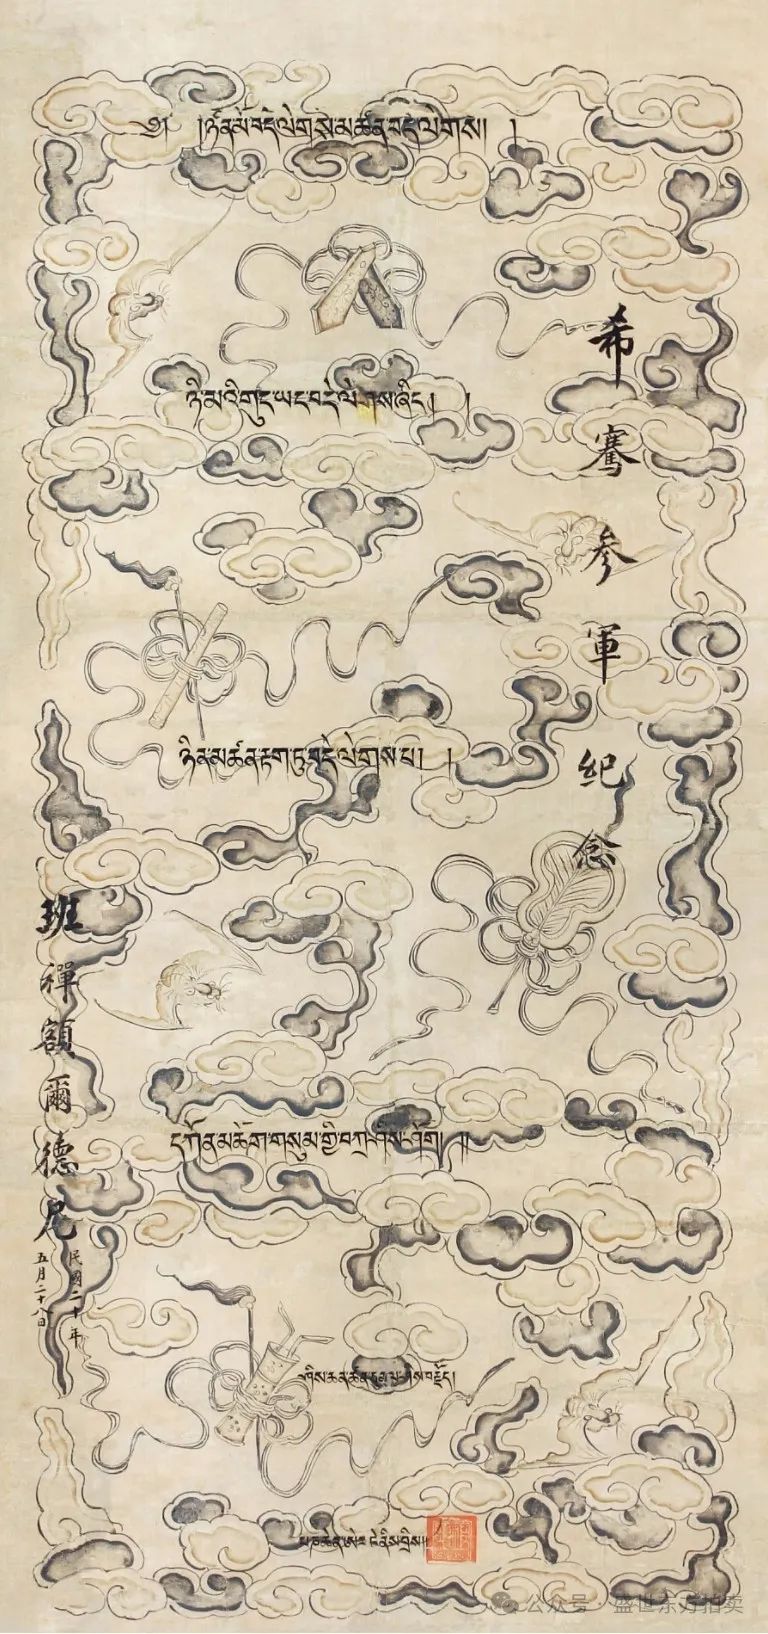 ༄༅། །ཉིན་མོ་བདེ་ལེགས་མཚན་བདེ་ལེགས། །
ཉི་མའི་གུང་ཡང་བདེ་ལེགས་ཤིང༌། །
ཉིན་མཚན་རྟག་ཏུ་བདེ་ལེགས་པ། །
དཀོན་མཆོག་གསུམ་གྱི་བཀྲ་ཤིས་ཤོག །།
希騫参軍紀念
班禪額爾德尼
民國二十年
五月二十八日
公众号·盛世东方拍卖